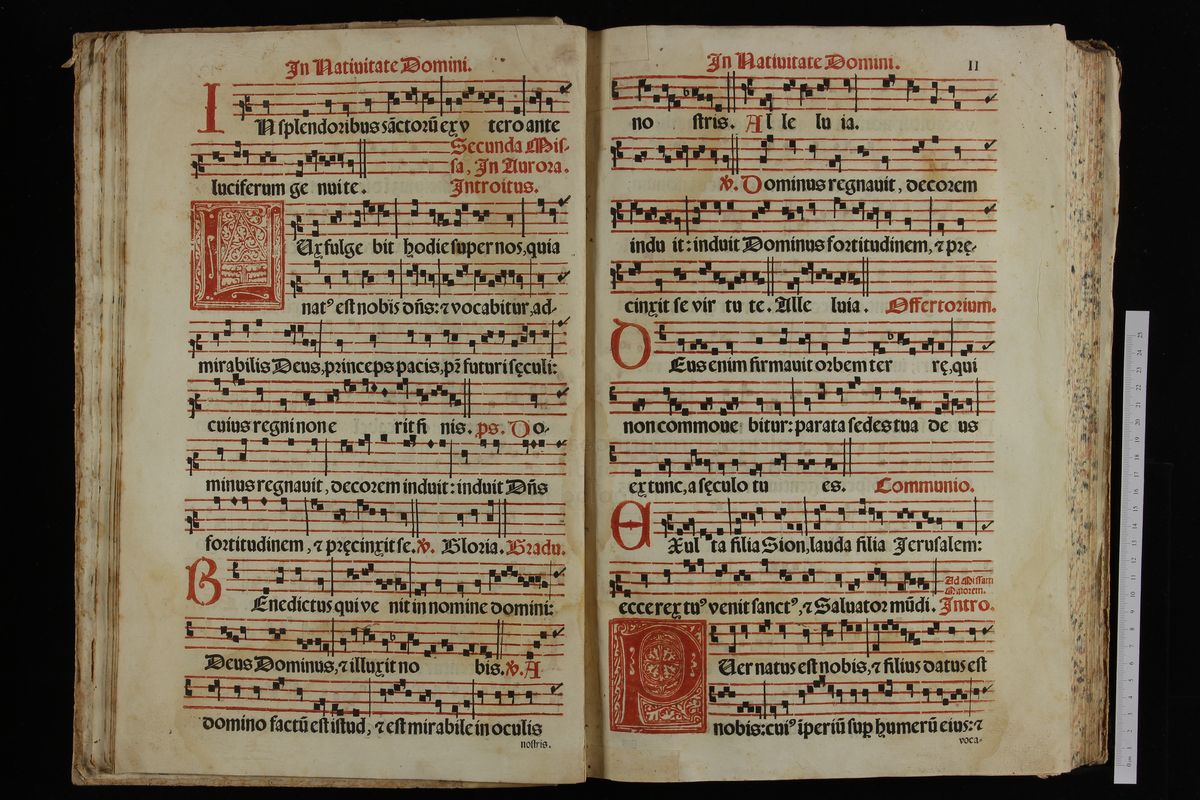 In Natiuitate Domini.
IN splendoribus sāctorū ex v tero ante
Secunda Mis-
sa, In Aurora.
luciferum ge nui te. Introitus.
LUx fulge bit hodie super nos, quia
nat⁹ est nobis dn̄s: ⁊ vocabitur, ad-
mirabilis Deus, princeps pacis, pr̄ futuri sęculi:
cuius regni non e rit fi nis. ps. Do-
minus regnauit, decorem induit: induit Dn̄s
fortitudinem, ⁊ pręcinxit se. ℣. Gloria. Gradu.
BEnedictus qui ve nit in nomine domini:
Deus Dominus, ⁊ illuxit no bis. ℣. A
domino factū est istud, ⁊ est mirabile in oculis
nostris.
In Natiuitate Domini. 11
no stris. Al le lu ia.
℣. Dominus regnauit, decorem
indu it: induit Dominus fortitudinem, ⁊ prę-
cinxit se vir tu te. Alle luia. Offertorium.
DEus enim firmauit orbem ter rę, qui
non commoue bitur: parata sedes tua de us
ex tunc, a sęculo tu es. Communio.
EXul ta filia Sion, lauda filia Jerusalem:
Ad Missam
Maiorem.
ecce rex tu⁹ venit sanct⁹, ⁊ Saluator mūdi. Intro.
PUer natus est nobis, ⁊ filius datus est
nobis: cui⁹ īperiū sup humerū eius: ⁊
voca-